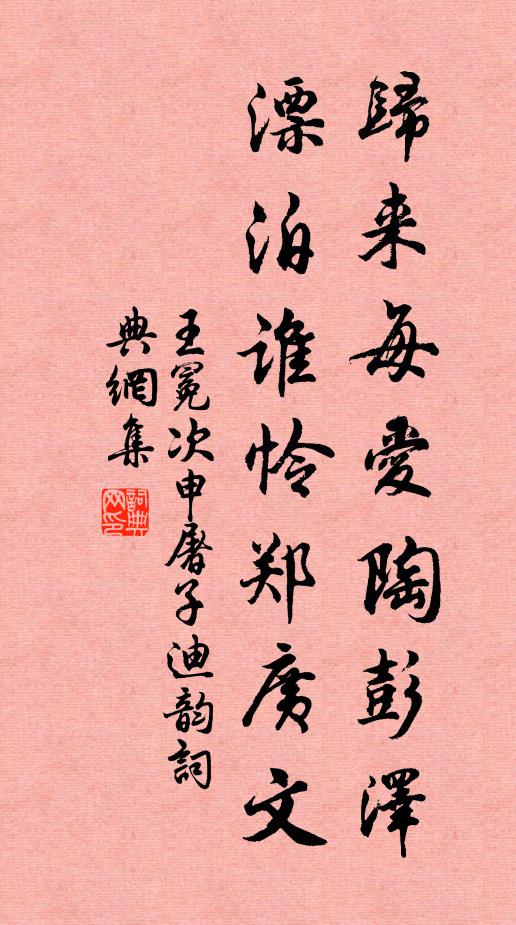 歸来每愛陶彭澤
漂泊谁怜郑廣文
王冕次申屠子迪韵詞
典網集
詞典网印